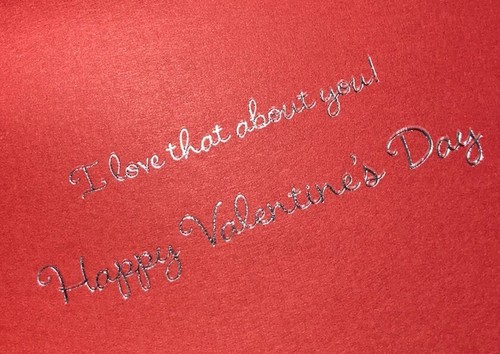 I love that about you!
Happy Valentine's Day